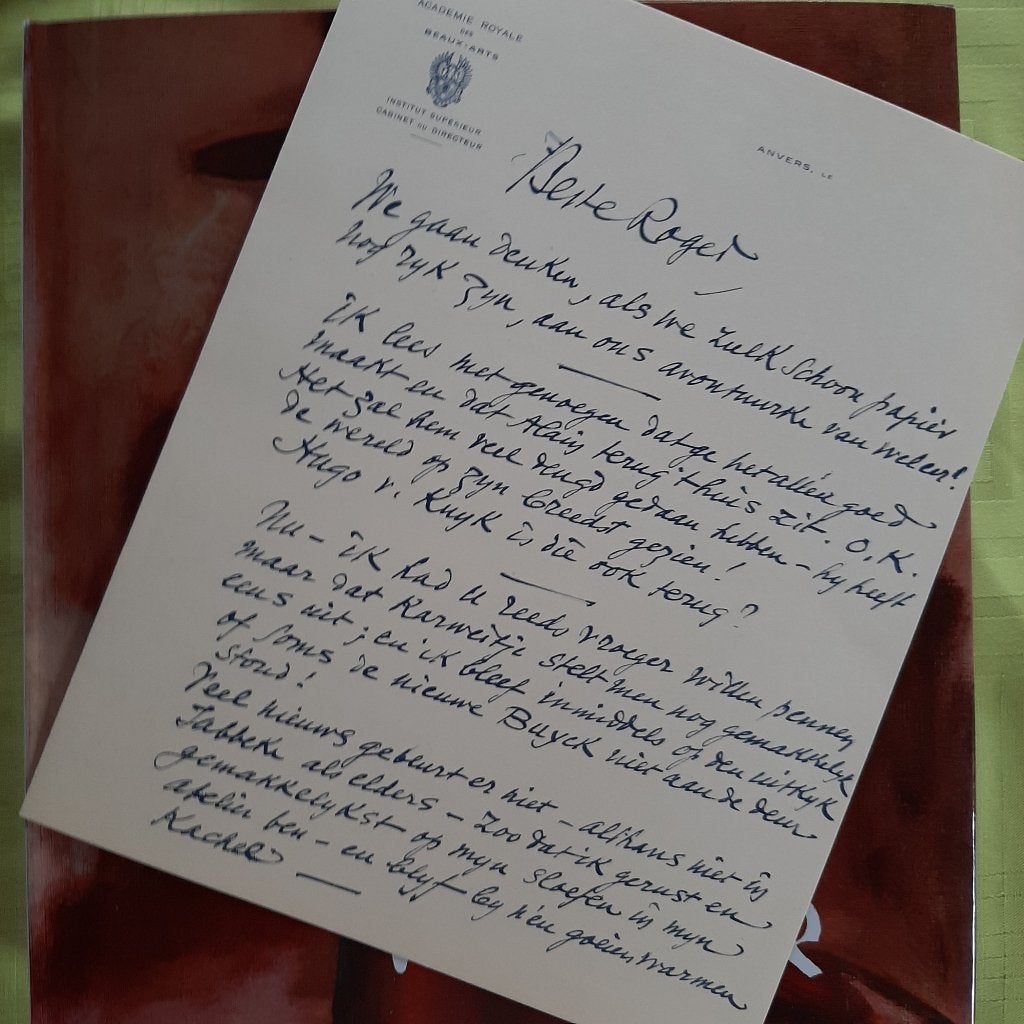 ACADEMIE ROYALE
DES
BEAUX-ARTS
INSTITUT SUPÉRIEUR
CABINET DU DIRECTEUR
ANVERS, LE
Beste Roger
We gaan denken, als we zulk schoon papier
nog ryk zyn, aan ons avontuurke van weleer!
ik lees met genoegen dat ge het alléén goed
maakt en dat Alain terug thuis zit. O.K.
Het zal hem veel deugd gedaan hebben – hy heeft
de wereld op zyn breedst gezien!
Hugo v. Kuyk is die ook terug?
Nu – ik had U reeds vroeger willen pennen
maar dat karweitje stelt men nog gemakkelyk
eens uit; en ik bleef inmiddels op den uitkyk
of soms de nieuwe Buyck niet aan de deur
stond!
Veel nieuws gebeurt er niet – althans niet in
Jabbeke als elders – zoo dat ik gerust en
gemakkelykst op myn sloefen in myn
atelier ben – en blyf by n'en goeien warmen
Kachel
R